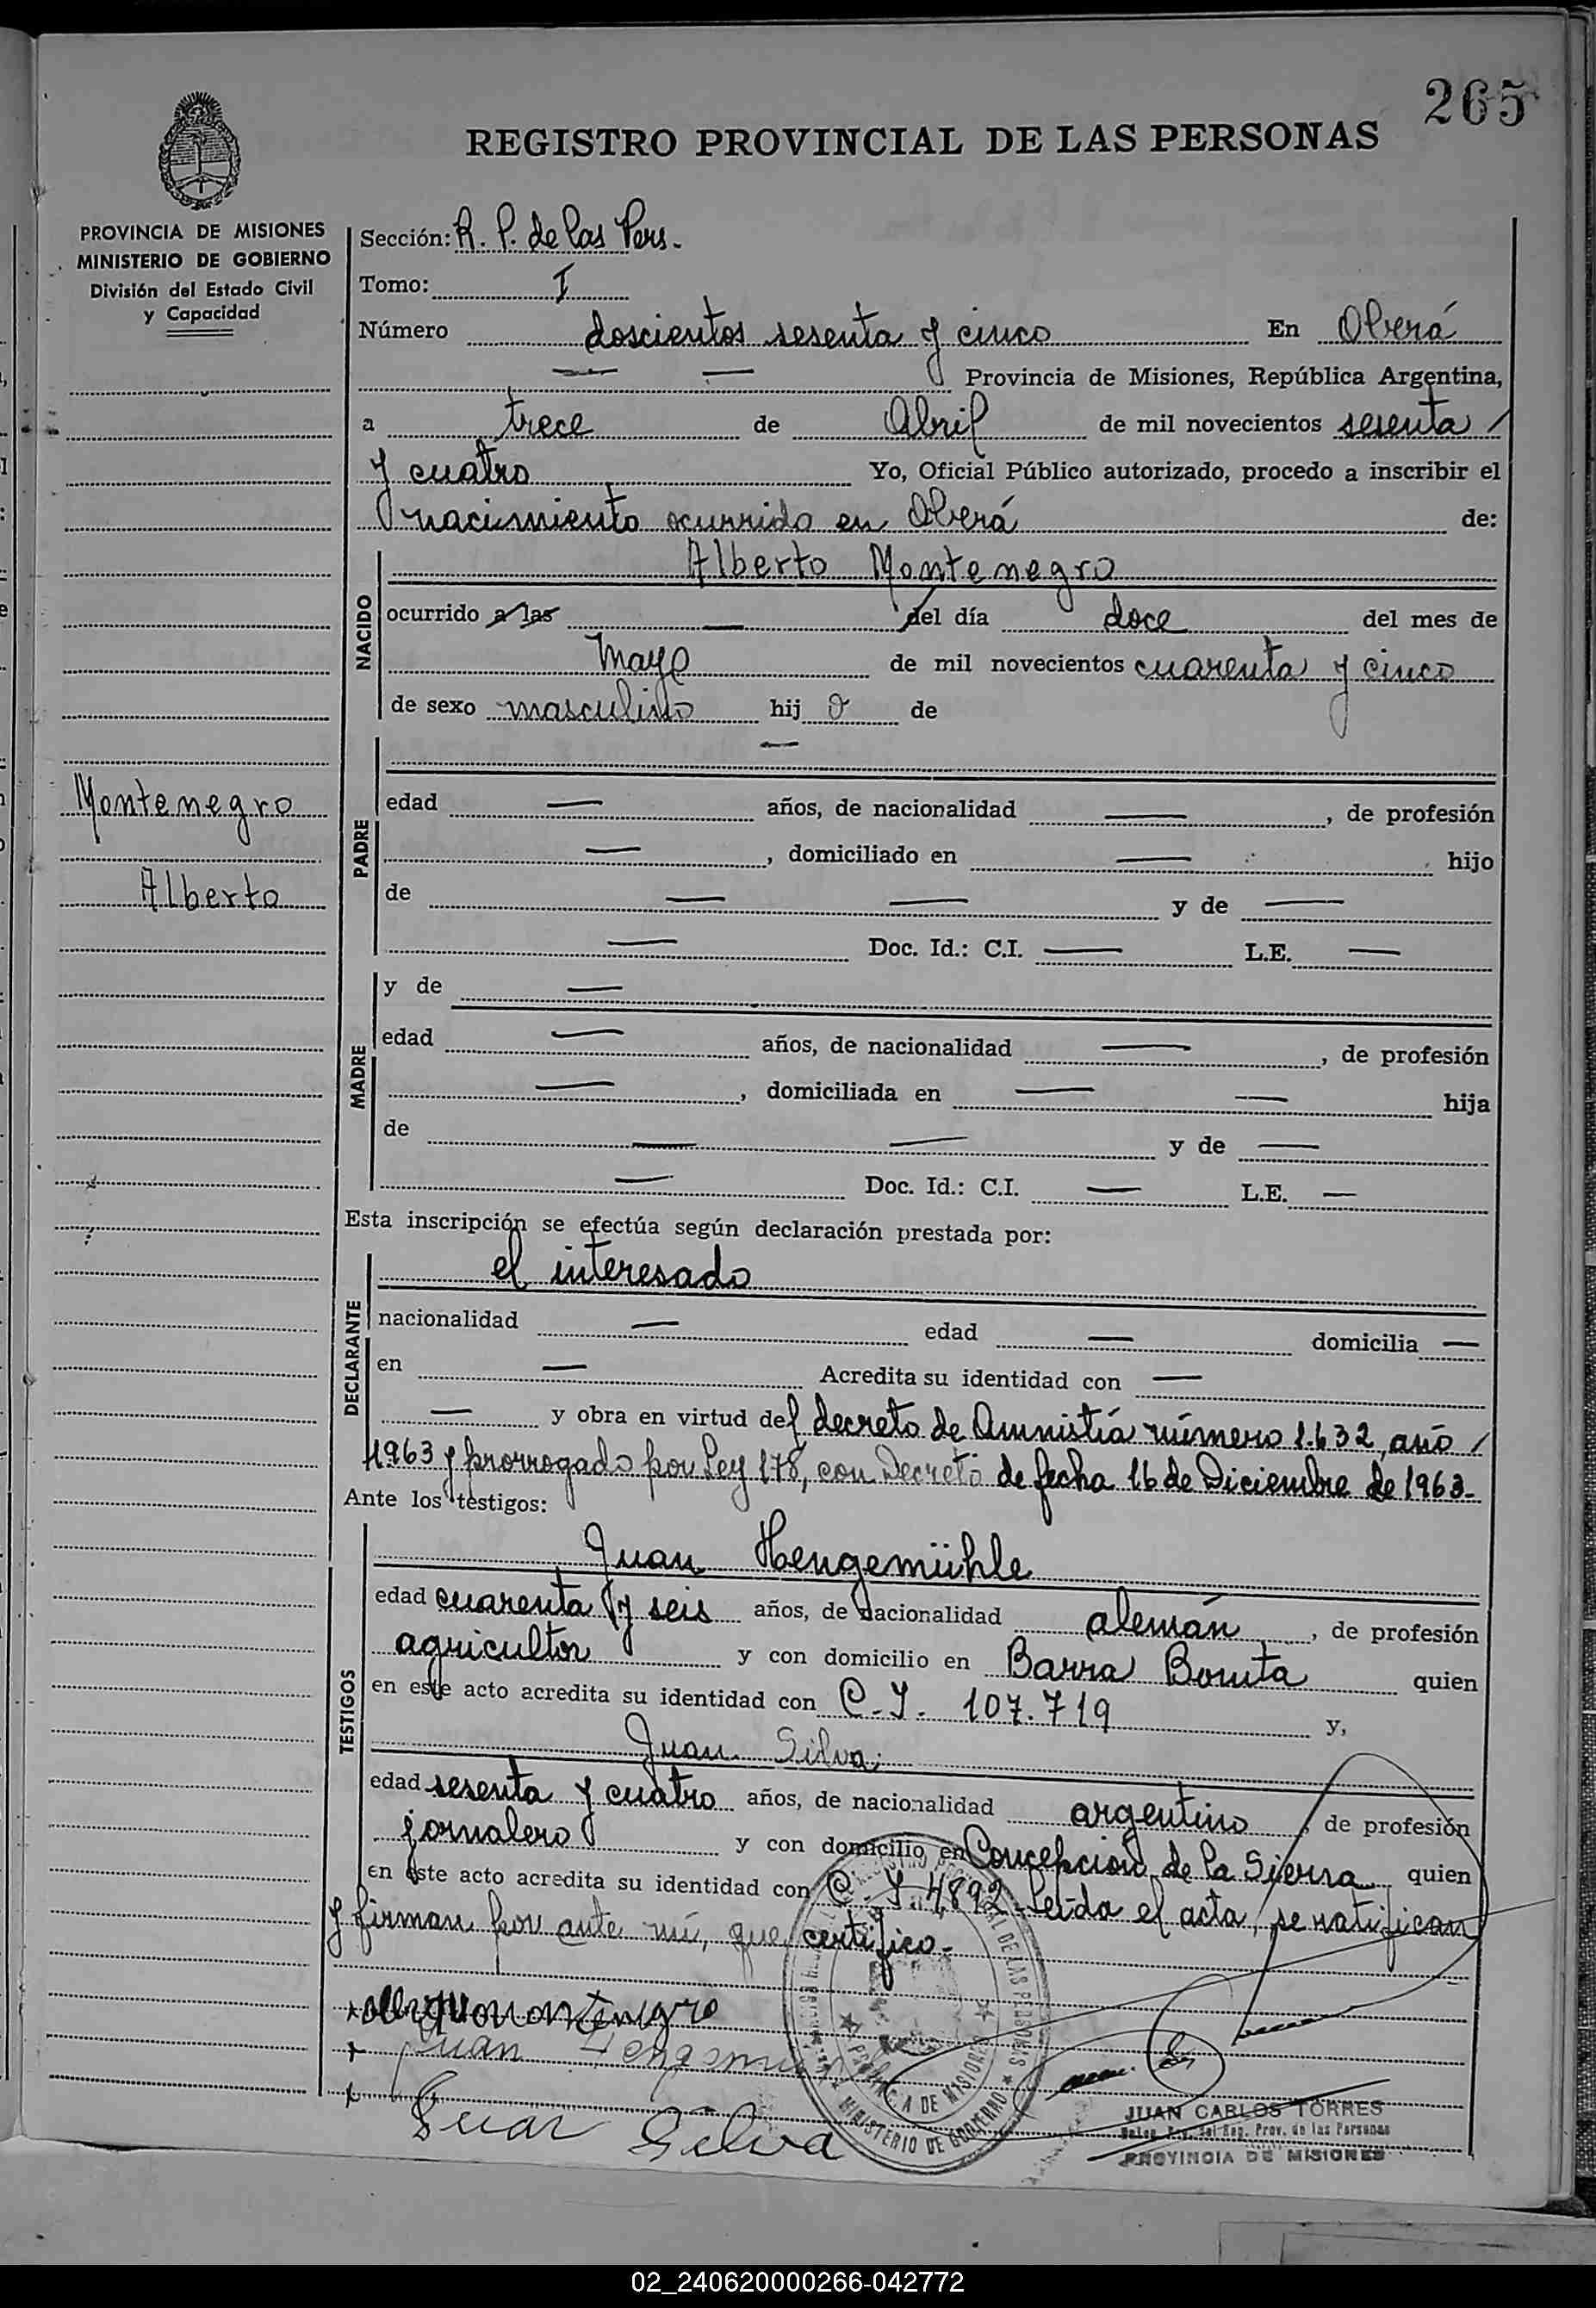 265
REGISTRO PROVINCIAL DE LAS PERSONAS
PROVINCIA DE MISIONES
MINISTERIO DE GOBIERNO
División del Estado Civil
y Capacidad
Montenegro
Alberto
Sección: R. P. de las Pers.
Tomo: I
Número doscientos sesenta y cinco En Oberá
— — Provincia de Misiones, República Argentina,
a trece de Abril de mil novecientos sesenta /
y cuatro Yo, Oficial Público autorizado, procedo a inscribir el
nacimiento ocurrido en Oberá de:
NACIDO
Alberto Montenegro
ocurrido a las — del día doce del mes de
Mayo de mil novecientos cuarenta y cinco
de sexo masculino hij o de
PADRE
—
edad — años, de nacionalidad —, de profesión
—, domiciliado en — hijo
de — — y de —
— Doc. Id.: C.I. — L.E. —
MADRE
y de —
edad — años, de nacionalidad —, de profesión
—, domiciliada en — — hija
de — — y de —
— Doc. Id.: C.I. — L.E. —
Esta inscripción se efectúa según declaración prestada por:
DECLARANTE
el interesado
nacionalidad — edad — domicilia —
en — Acredita su identidad con —
— y obra en virtud del decreto de Amnistía número 1.632, año /
1963 y prorrogado por Ley 178, con Decreto de fecha 16 de Diciembre de 1963-
Ante los testigos:
TESTIGOS
Juan Hengemühle
edad cuarenta y seis años, de nacionalidad alemán, de profesión
agricultor y con domicilio en Barra Bonita quien
en este acto acredita su identidad con C.I. 107.719 y,
Juan Silva
edad sesenta y cuatro años, de nacionalidad argentino, de profesión
jornalero y con domicilio en Concepción de la Sierra quien
en este acto acredita su identidad con C.I 4892- Leída el acta, se ratifican
y firman por ante mí, que certifico.-
Juan
Juan Silva
PROVINCIA DE MISIONES
MINISTERIO DE GOBIERNO
JUAN CARLOS TORRES
Reg. Prov. de las Personas
PROVINCIA DE MISIONES
02_240620000266-042772